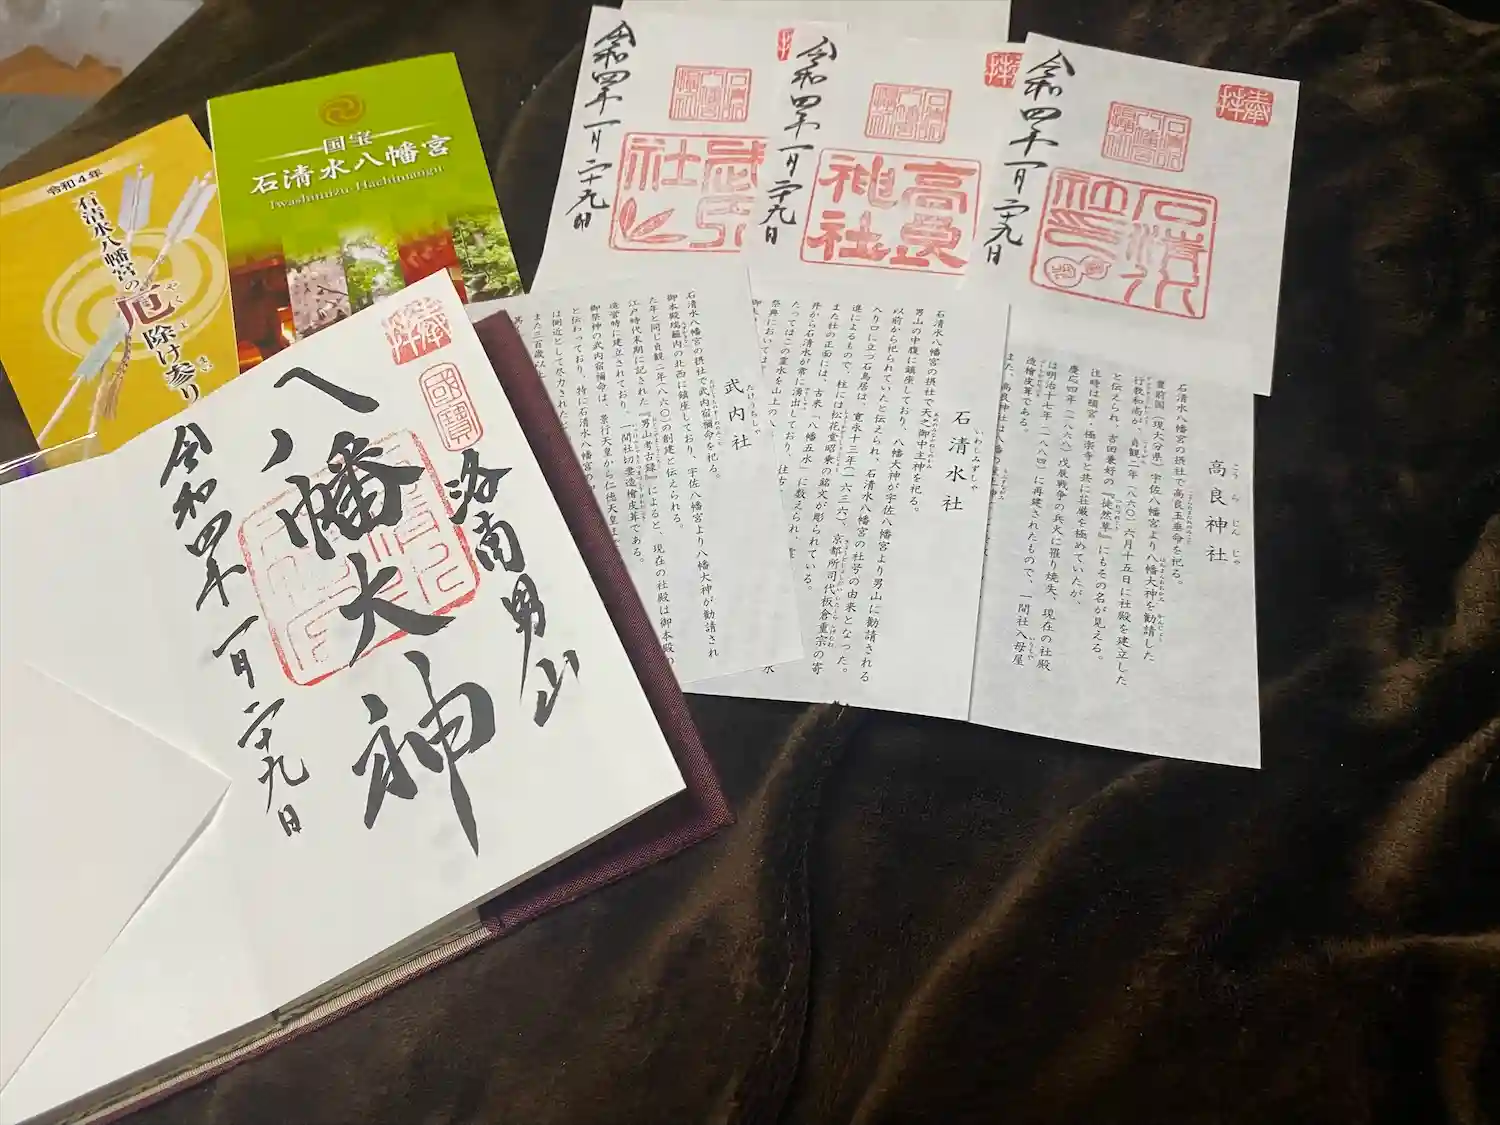 令和4年
石清水八幡宮の
厄除け参り
やくよけまいり
国宝
石清水八幡宮
Iwashimizu-Hachimangu
奉拝
國寶
洛南男山
八幡大神
令和四年一月二十九日
令和四年一月二十九日
武内社
令和四年一月二十九日
高良神社
奉拝
石清水社
令和四年一月二十九日
武内社
たけうちしゃ
石清水八幡宮の摂社で武内宿禰命を祀る。
御本殿瑞籬内の北西に鎮座しており、宇佐八幡宮より八幡大神が勧請され
た年と同じ貞観二年(八六〇)の創建と伝えられる。
江戸時代末期に記された『男山考古録』によると、現在の社殿は御本殿の
造営時に建立されており、一間社切妻造檜皮葺である。
御祭神の武内宿禰命は、景行天皇から仁徳天皇
と伝わっており、特に石清水八幡宮の
は側近として尽力された
また三百歳以
石清水社
いわしみずしゃ
石清水八幡宮の摂社で天之御中主神を祀る。
男山の中腹に鎮座しており、八幡大神が宇佐八幡宮より男山に勧請される
以前から祀られていたと伝えられ、石清水八幡宮の社号の由来となった。
入り口に立つ石鳥居は、寛永十三年(一六三六)、京都所司代板倉重宗の寄
進によるもので、柱には松花堂昭乗の銘文が彫られている。
また社の正面には、古来「八幡五水」に数えられ、
井から石清水が常に湧出しており、
たってはこの霊水を山上の
祭典においては
高良神社
こうらじんじゃ
石清水八幡宮の摂社で高良玉垂命を祀る。
豊前国(現大分県)宇佐八幡宮より八幡大神を勧請した
行教和尚が、貞観二年(八六〇)六月十五日に社殿を建立した
と伝えられ、吉田兼好の『徒然草』にもその名が見える。
往時は頓宮・極楽寺と共に荘厳を極めていたが、
慶応四年(一八六八)戊辰戦争の兵火に罹り焼失、現在の社殿
は明治十七年(一八八四)に再建されたもので、一間社入母屋
造檜皮葺である。
また、高良神社は八幡の